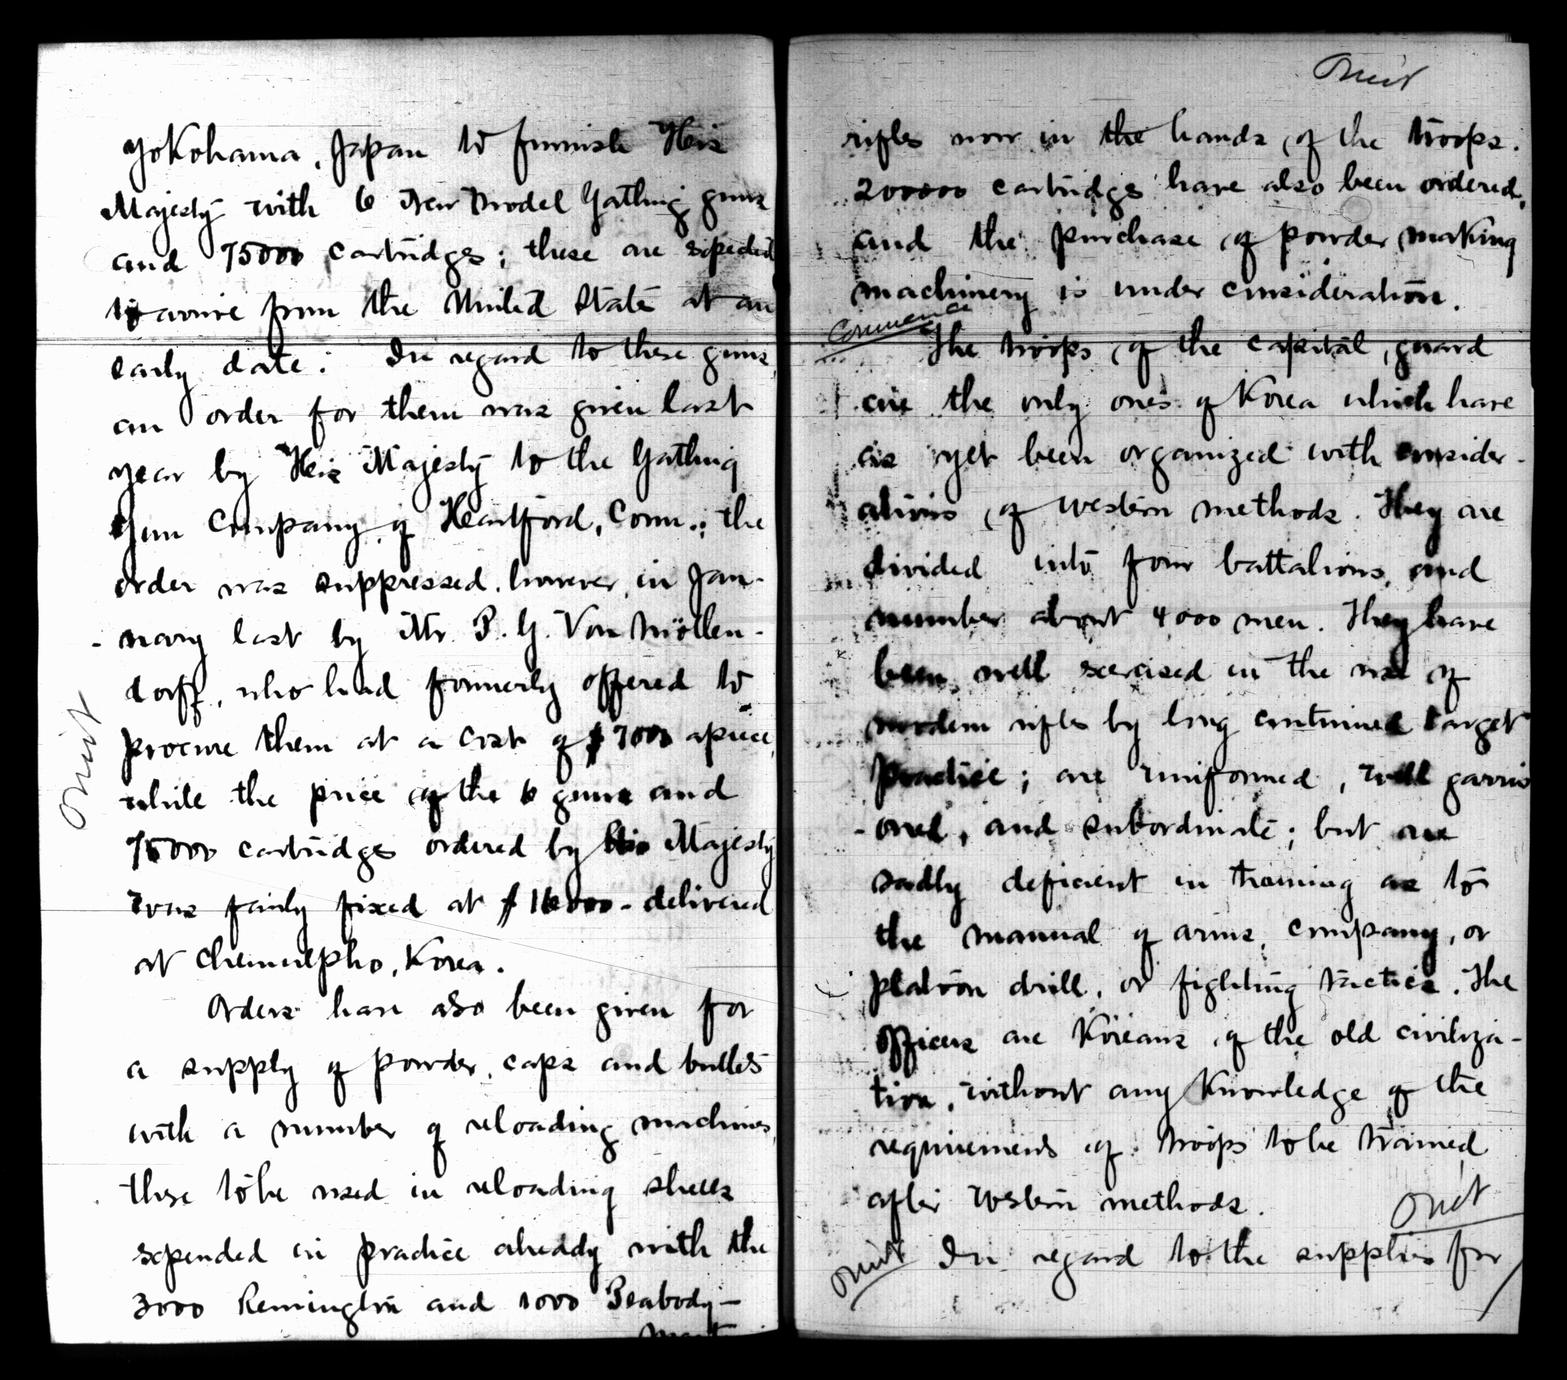 Yokohama, Japan to furnish His
Majesty with 6 New Model Gatling guns
and 75000 cartridges; these are expected
to arrive from the United States at an
early date. In regard to these guns,
an order for them was given last
year by His Majesty to the Gatling
Gun Company of Heartford, Conn.; the
order was suppressed, however, in Jan-
-nary last by Mr. P. G. Von Möllen-
dorff, who had formerly offered to
procure them at a cost of $7000 apiece,
while the price of the 6 guns and
75000 cartridges ordered by His Majesty
was fairly fixed at $16000 - delivered
at Chemulpho, Korea.
Orders have also been given for
a supply of powder, caps and bullets
with a number of reloading machines,
these to be used in reloading shells
expended in practice already with the
3000 Remington and 1000 Peabody-
Omit
Omit
rifles now in the hands of the troops.
200000 cartridges have also been ordered,
and the purchase of powder making
machinery is under consideration.
Commence
The troops of the capital guard
are the only ones of Korea which have
as yet been organized with consider-
ations of western methods. They are
divided into four battalions, and
number about 4000 men. They have
been well exercised in the use of
modern rifles by long continued target
practice; are uniformed, well garris
-oned, and subordinate; but are
sadly deficient in training as to
the manual of arms, company, or
platoon drill, or fighting tactics. The
officers are Koreans of the old civiliza-
tion, without any knowledge of the
requirements of troops to be trained
after western methods.
Omit
Omit In regard to the supplies for